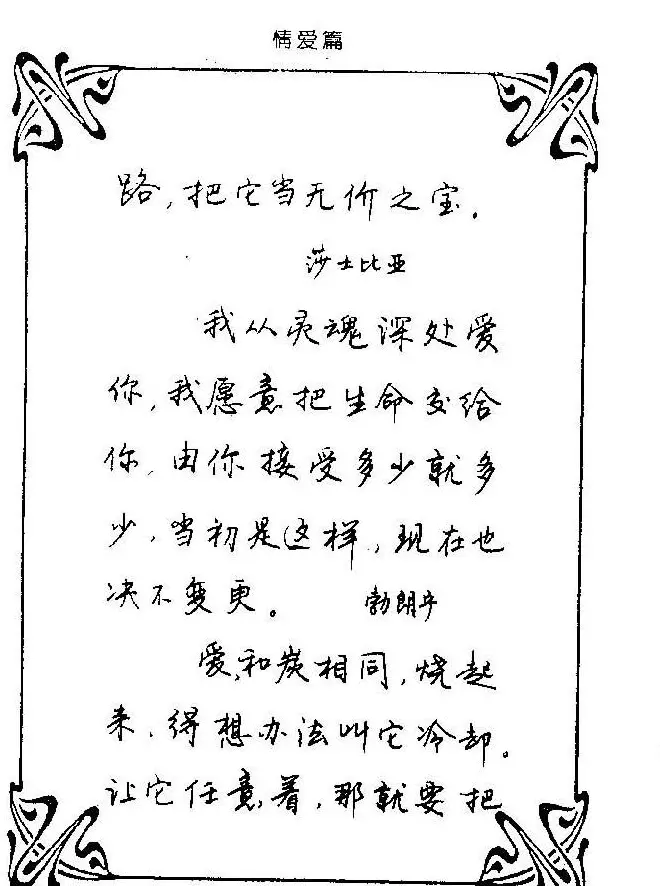 情爱篇
路，把它当无价之宝．
莎士比亚
我从灵魂深处爱
你，我愿意把生命交给
你，由你接受多少就多
少，当初是这样，现在也
决不变更。 勃朗宁
爱，和炭相同，烧起
来，得想办法叫它冷却。
让它任意着，那就要把